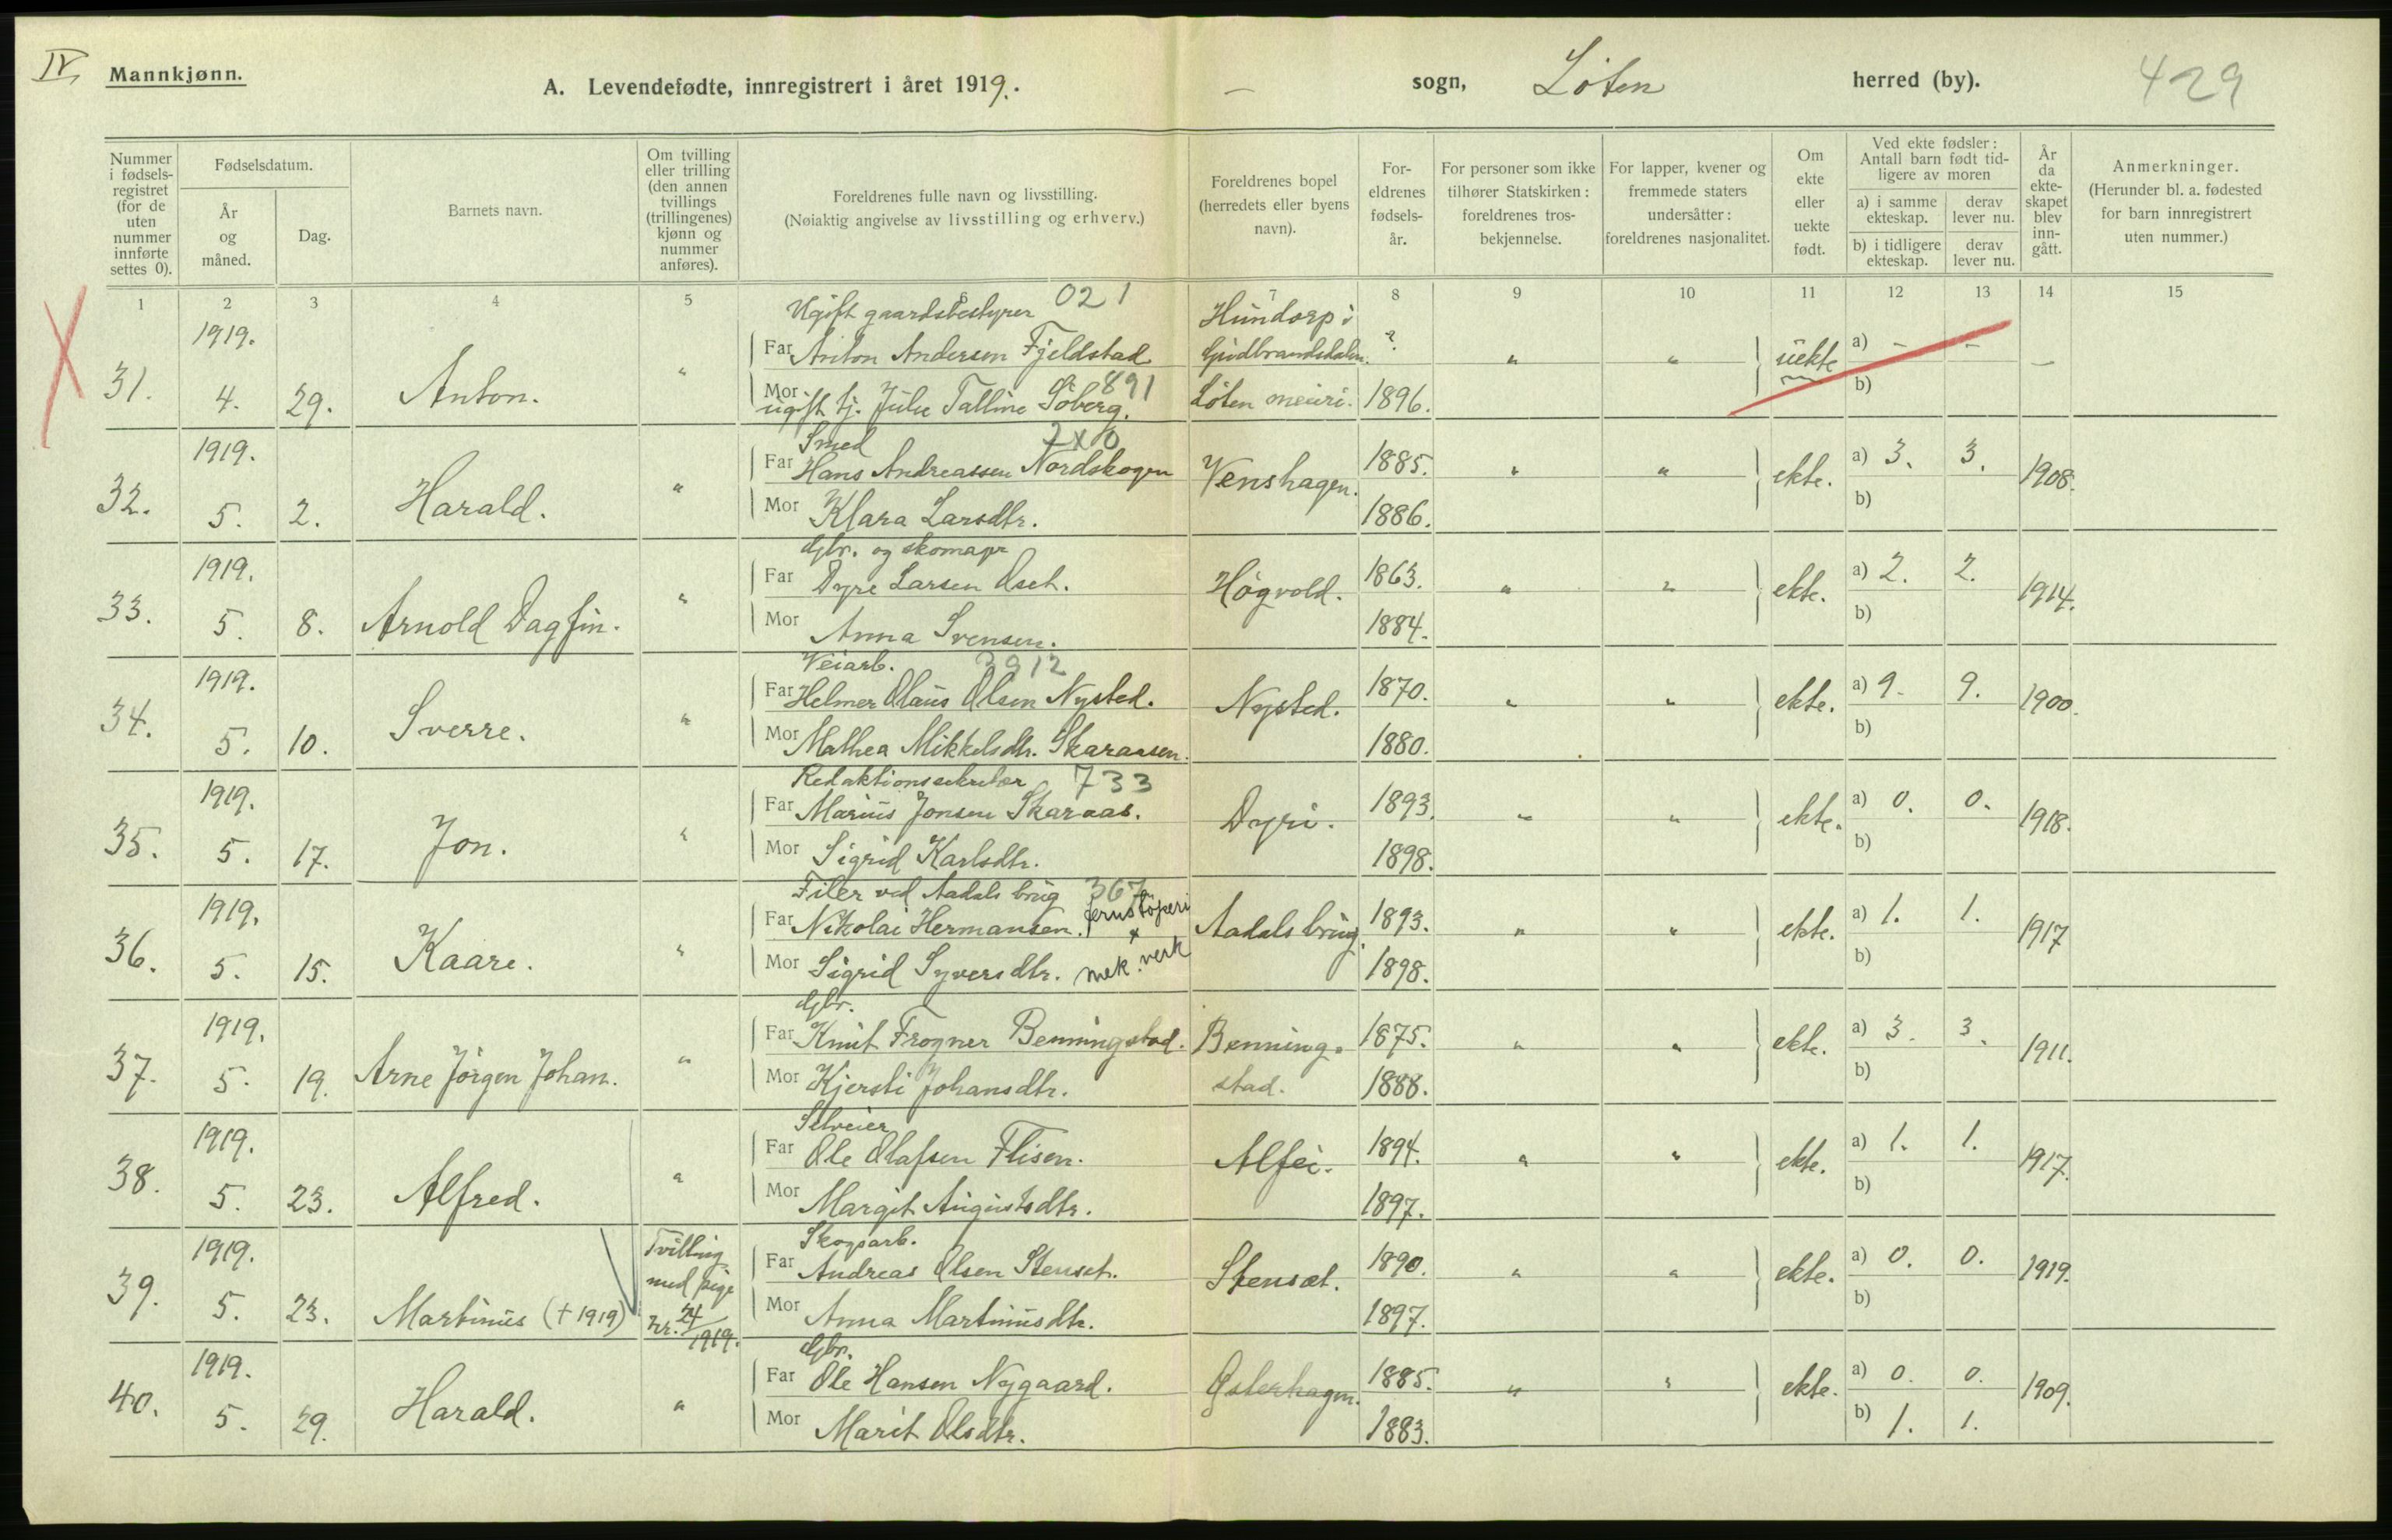 IV
Mannkjønn.
A. Levendefødte, innregistrert i året 1919.
— sogn, Löten herred (by).
429
Nummer i fødselsregistret (for de uten nummer innførte settes 0).
Fødselsdatum.
År og måned.
Dag.
Barnets navn.
Om tvilling eller trilling (den annen tvillings (trillingenes) kjønn og nummer anføres).
Foreldrenes fulle navn og livsstilling.
(Nøiaktig angivelse av livsstilling og erhverv.)
Foreldrenes bopel (herredets eller byens navn).
Foreldrenes fødselsår.
For personer som ikke tilhører Statskirken: foreldrenes trosbekjennelse.
For lapper, kvener og fremmede staters undersåtter: foreldrenes nasjonalitet.
Om ekte eller uekte født.
Ved ekte fødsler: Antall barn født tidligere av moren
a) i samme ekteskap.
derav lever nu.
b) i tidligere ekteskap.
derav lever nu.
År da ekteskapet blev inngått.
Anmerkninger.
(Herunder bl. a. fødested for barn innregistrert uten nummer.)
1 2 3 4 5 6 7 8 9 10 11 12 13 14 15
Ugift gaardsbestyrer 021 Hundorp i
1919. Far Anton Andersen Fjeldstad Gudbrandsdalen. ? " " uekte a) – – —
31. 4. 29. Anton. " Mor ugift tj. Julie Talline Söberg. 891 Löten meieri. 1896. b)
Smed 7x0
1919. Far Hans Andreassen Nordskogen Venshagen. 1885. " " ekte. a) 3. 3. 1908.
32. 5. 2. Harald. " Mor Klara Larsdtr. 1886. b)
Gbr. og skomager
1919. Far Dyre Larsen Oset. Högvold. 1863. " " ekte. a) 2. 2. 1914.
33. 5. 8. Arnold Dagfin. " Mor Anna Svensen. 1884. b)
Veiarb. 3912
1919. Far Helmer Olaus Olsen Nysted. Nysted. 1870. " " ekte. a) 9. 9. 1900.
34. 5. 10. Sverre. " Mor Mathea Mikkelsdtr. Skaraasen. 1880. b)
Redaktionssekretær 733
1919. Far Marius Jonsen Skaraas. Dyri. 1893. " " ekte. a) 0. 0. 1918.
35. 5. 17. Jon. " Mor Sigrid Karlsdtr. 1898. b)
Filer ved Aadals brug 367
1919. Far Nikolai Hermansen. jernstöperi Aadals brug. 1893. " " ekte. a) 1. 1. 1917
36. 5. 15. Kaare. " Mor Sigrid Syversdtr. x mek. verk 1898. b)
Gbr.
1919. Far Knut Frogner Benningstad. Benning- 1875. " " ekte. a) 3. 3. 1911.
37. 5. 19. Arne Jörgen Johan. " Mor Kjersti Johansdtr. stad. 1888. b)
Selveier
1919. Far Ole Olafsen Flisen. Alfei. 1894. " " ekte. a) 1. 1. 1917.
38. 5. 23. Alfred. " Mor Margit Augustsdtr. 1897. b)
Tvilling Skogsarb.
1919. med pige Far Andreas Olsen Stenset. Stensæt. 1890. " " ekte. a) 0. 0. 1919.
39. 5. 23. Martinus (+1919) nr. 24/1919. Mor Anna Martinusdtr. 1897. b)
Gbr.
1919. Far Ole Hansen Nygaard. Österhagen. 1885. " " ekte. a) 0. 0. 1909.
40. 5. 29. Harald. " Mor Marit Olsdtr. 1883. b) 1. 1.